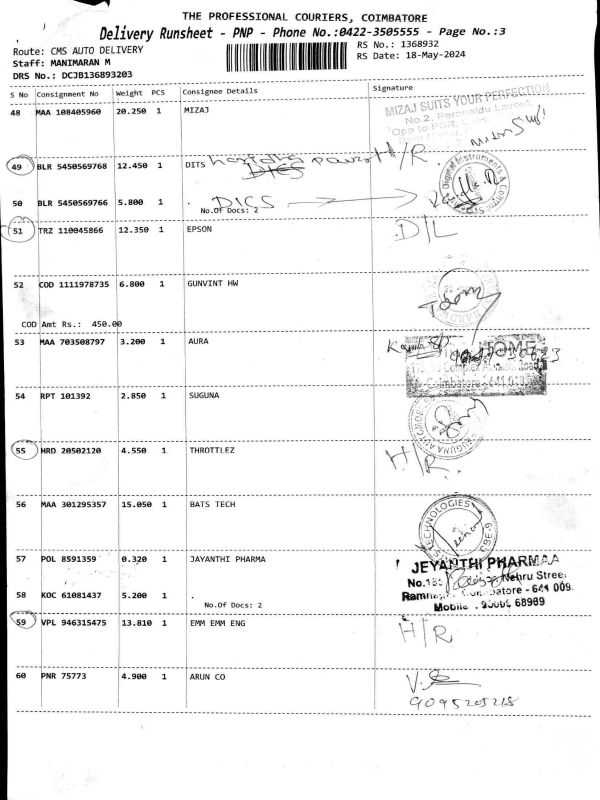 THE PROFESSIONAL COURIERS, COIMBATORE
Delivery Runsheet - PNP - Phone No.:0422-3505555 - Page No.:3
Route: CMS AUTO DELIVERY
RS No.: 1368932
Staff: MANIMARAN M
RS Date: 18-May-2024
DRS No.: DCJB136893203
S No Consignment No Weight PCS Consignee Details Signature
48 MAA 108405960 20.250 1 MIZAJ
MIZAJ SUITS YOUR PERFECTION
No.2, Perumaldu Layout,
Opp to PSR,
49 BLR 5450569768 12.450 1 DITS H/R.
DICS
Digital Instruments &
50 BLR 5450569766 5.800 1 . DICS
No.Of Docs: 2
51 TRZ 110045866 12.350 1 EPSON D/L
52 COD 1111978735 6.800 1 GUNVINT HW
COD Amt Rs.: 450.00
53 MAA 703508797 3.200 1 AURA
HOME
Coimbatore - 641 012
54 RPT 101392 2.850 1 SUGUNA
SUGUNA AUTOMOB
55 HRD 20502120 4.550 1 THROTTLEZ H/R.
56 MAA 301295357 15.050 1 BATS TECH
TECHNOLOGIES
CBE 9
57 POL 8591359 0.320 1 JAYANTHI PHARMA
JEYANTHI PHARMAA
Nehru Street
58 KOC 61081437 5.200 1 .
Coimbatore - 641 009
No.Of Docs: 2
Mobile : 68989
59 VPL 946315475 13.810 1 EMM EMM ENG H/R
60 PNR 75773 4.900 1 ARUN CO
9095205218